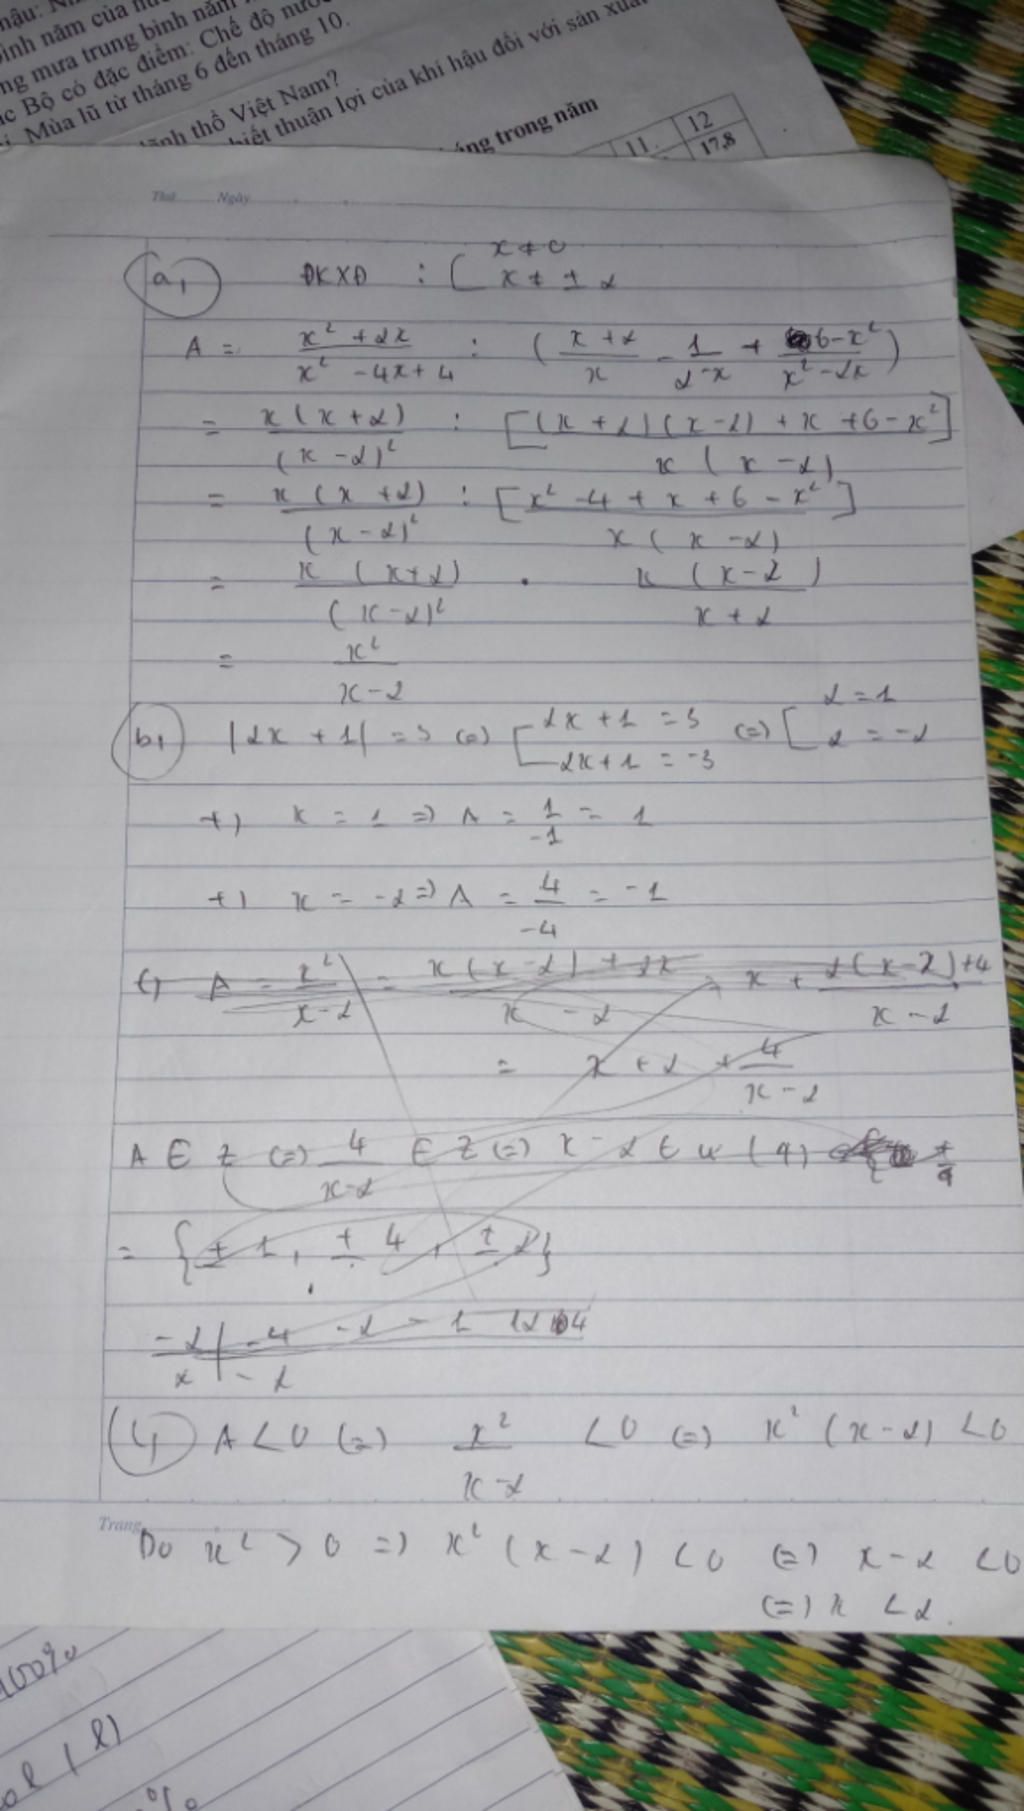 ình năm của
ng mưa trung bình năm
ắc Bộ có đặc điểm: Chế độ nước
Mùa lũ từ tháng 6 đến tháng 10.
lãnh thổ Việt Nam?
biết thuận lợi của khí hậu đối với sản xuất
áng trong năm
11 12
17,8
Thứ Ngày
a, ĐKXĐ : [ x ≠ 0
x ≠ ± 2
A = (x² + 2x)/(x² - 4x + 4) : ( (x + 2)/x - 1/(2 - x) + (6 - x²)/(x² - 2x) )
= x(x + 2)/(x - 2)² : [(x + 2)(x - 2) + x + 6 - x²]/x(x - 2)
= x(x + 2)/(x - 2)² : [x² - 4 + x + 6 - x²]/x(x - 2)
= x(x + 2)/(x - 2)² . x(x - 2)/(x + 2)
= x²/(x - 2)
b, |2x + 1| = 3 (=) [ 2x + 1 = 3 (=) [ 2 = 1
2x + 1 = -3 2 = -2
+) x = 1 => A = 1/-1 = 1
+) x = -2 => A = 4/-4 = -1
c, A = x²/(x - 2) = (x(x - 2) + 2x)/(x - 2) = x + (2(x - 2) + 4)/(x - 2)
= x + 2 + 4/(x - 2)
A ∈ Z (=) 4/(x - 2) ∈ Z (=) x - 2 ∈ Ư(4)
= {± 1, ± 4, ± 2}
-2 | -4 -2 - 1 1 2 4
x - 2
c, A < 0 (=) x²/(x - 2) < 0 (=) x²(x - 2) < 0
Trang
Do x² > 0 => x²(x - 2) < 0 (=) x - 2 < 0
(=) x < 2.
100%
ol (l)
%